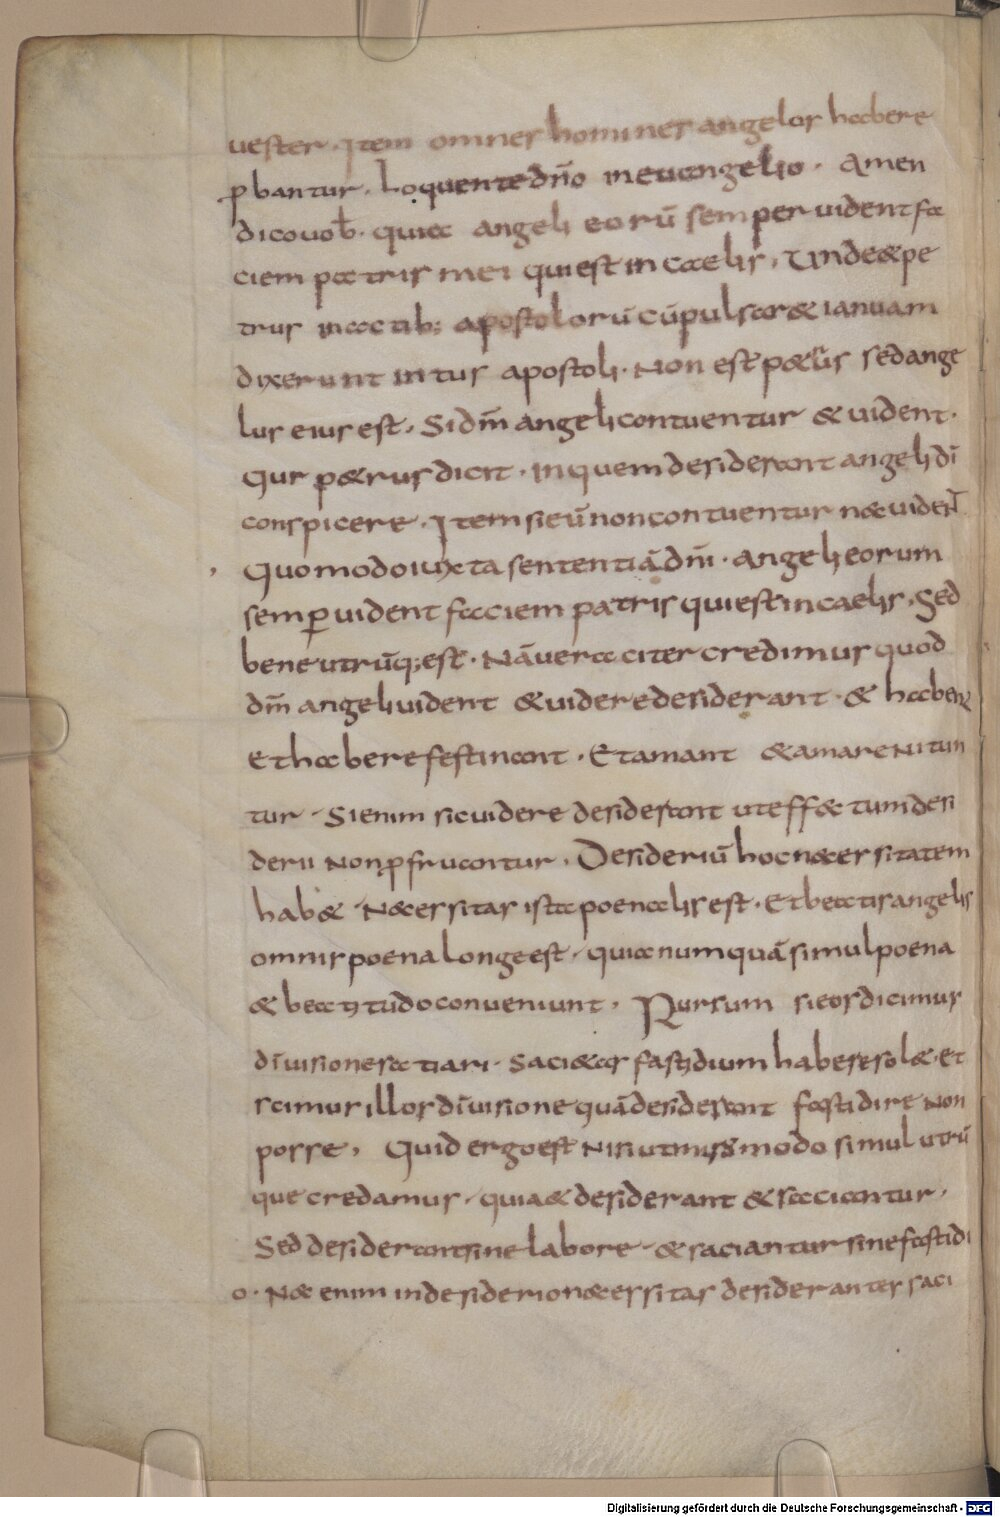 uester. Item omnes homines angelos habere
ꝓbantur. Loquente dn̄o in euangelio. Amen
dico uob̄. quia angeli eorū semper uident fa
ciem patris mei qui est in caelis. Unde & pe
trus in actib; apostolorū cū pulsar& ianuam
dixerunt intus apostoli. Non est p&rus sed ange
lus eius est. Si dm̄ angeli contuentur & uident.
Cur p&rus dicit. in quem desiderant angeli dī
conspicere. Item si eū non contuentur nec uident̄
Quomodo iuxta sententiā dn̄i. Angeli eorum
semꝑ uident faciem patris qui est in caelis. Sed
bene utrūq; est. Nā ueraciter credimus quod
dm̄ angeli uident & uidere desiderant. & habent
Et habere festinant. Et amant & amare nitun
tur. Si enim sic uidere desiderant ut eff&tum desi
derii non ꝑfruantur. Desideriū hoc necessitatem
hab&. Necessitas ista poenalis est. Et beatis angelis
omnis poena longe est. quia numquā simul poena
& beatitudo conueniunt. Rursum si eos dicimus
dī uisione satiari. Saci&as fastidium habere sol&. et
scimus illos dī uisione quā desiderant fastidire non
posse. Quid ergo est nisi ut miro modo simul utrū
que credamus. quia & desiderant & saciantur.
Sed desiderant sine labore. & saciantur sine fastidi
o. Nec enim in desiderio necessitas desiderantes saci
Digitalisierung gefördert durch die Deutsche Forschungsgemeinschaft - DFG